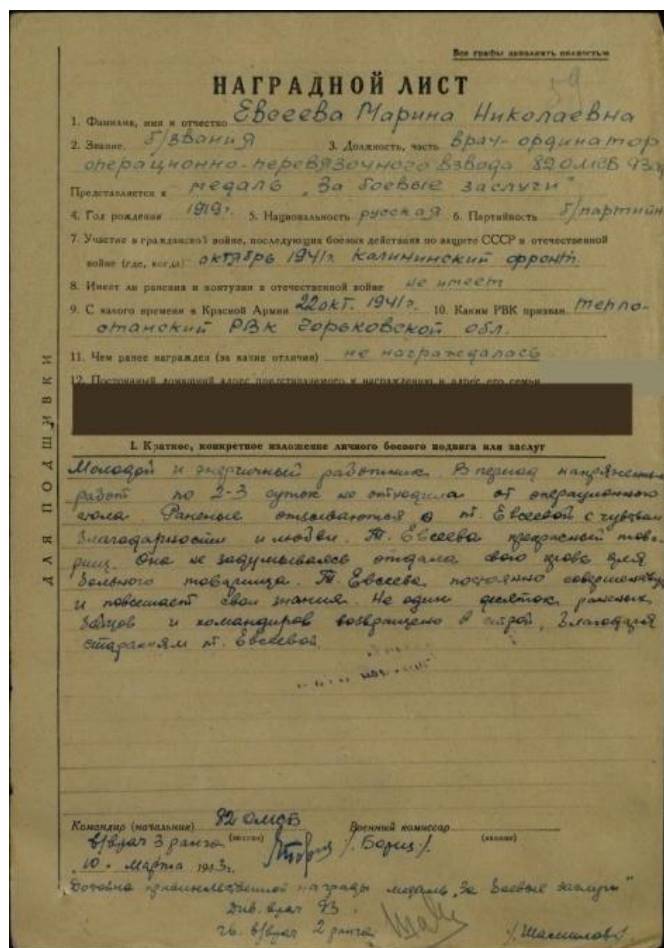 Все графы заполнять полностью
59
НАГРАДНОЙ ЛИСТ
1. Фамилия, имя и отчество Евсеева Марина Николаевна
2. Звание б/звания 3. Должность, часть врач-ординатор
операционно-перевязочного взвода 82 ОМСБ 93
Представляется к медаль „За боевые заслуги"
4. Год рождения 1919г. 5. Национальность русская 6. Партийность б/партийн
7. Участие в гражданской войне, последующих боевых действиях по защите СССР и отечественной
войне (где, когда) октябрь 1941г. Калининский фронт
8. Имеет ли ранения и контузии в отечественной войне не имеет
9. С какого времени в Красной Армии 22 окт. 1941г. 10. Каким РВК призван тепло-
станский РВК Горьковской обл.
11. Чем ранее награжден (за какие отличия) не награждалась
12. Постоянный домашний адрес представляемого к награждению и адрес его семьи
I. Краткое, конкретное изложение личного боевого подвига или заслуг
Молодой и энергичный работник. В период напряженных
работ по 2-3 суток не отходила от операционного
стола. Раненые отзываются о т. Евсеевой с чувством
благодарности и любви. Т. Евсеева прекрасный това-
рищ. Она не задумываясь отдала свою кровь для
больного товарища. Т. Евсеева постоянно совершенствует
и повышает свои знания. Не один десяток раненых
бойцов и командиров возвращено в строй, благодаря
стараниям т. Евсеевой.
ДЛЯ ПОДШИВКИ
Командир (начальник) 82 ОМСБ Военный комиссар
(звание) (звание)
в/врач 3 ранга /. Борщ /.
„10" марта 1943г.
Достойна правительственной награды медаль „За боевые заслуги"
Див. врач 93
в/врач 2 ранга